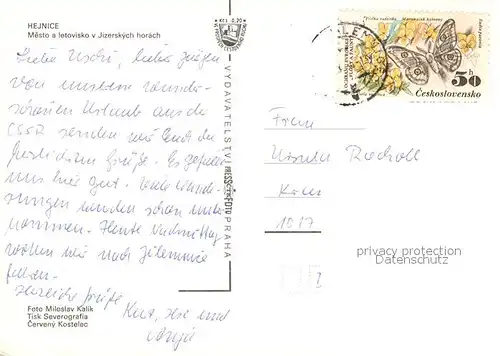 HEJNICE
Město a letovisko v Jizerských horách
Liebe Uschi, liebe Jürgen
von unserem wunder-
schönen Urlaub aus der
CSSR senden wir Euch die
herzlichsten Grüße. Es gefällt
uns hier gut. viele Wande-
rungen wurden schon unter-
nommen. Heute Nachmittag
wollen wir nach Jilemnice
fahren.
Herzliche Grüße
Kurt, Ilse und
Anja
Foto Miloslav Kalík
Tisk Severografia
Červený Kostelec
Kčs 0,20
VYDAVATELSTVÍ PRESSFOTO PRAHA
50 h
Československo
Frau
Ursula
1017
privacy protection
watermark